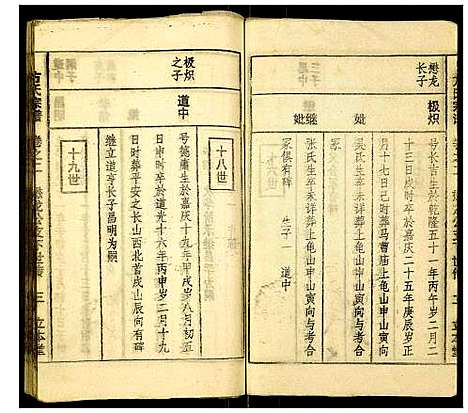 懋龙
长子
极炽
号长吉生於乾隆五十一年丙午岁二月二
十三日戌时卒於嘉庆二十五年庚辰岁正
月十七日己时葬马曹庙上龟山申山寅向
妣
吴氏生卒未详葬上龟山申山寅向与考合
冢
继妣
张氏生卒未详葬上龟山申山寅向与考合
冢俱有碑
生子一
道中
十八世
极炽
之子
道中
号德庸生於嘉庆十九年甲戌岁八月初五
日时卒於道光十六年丙申岁二月十九
日时葬平安之长山西北首戌山辰向有碑
继立道亨长子昌明为嗣
十九世
三
立本堂